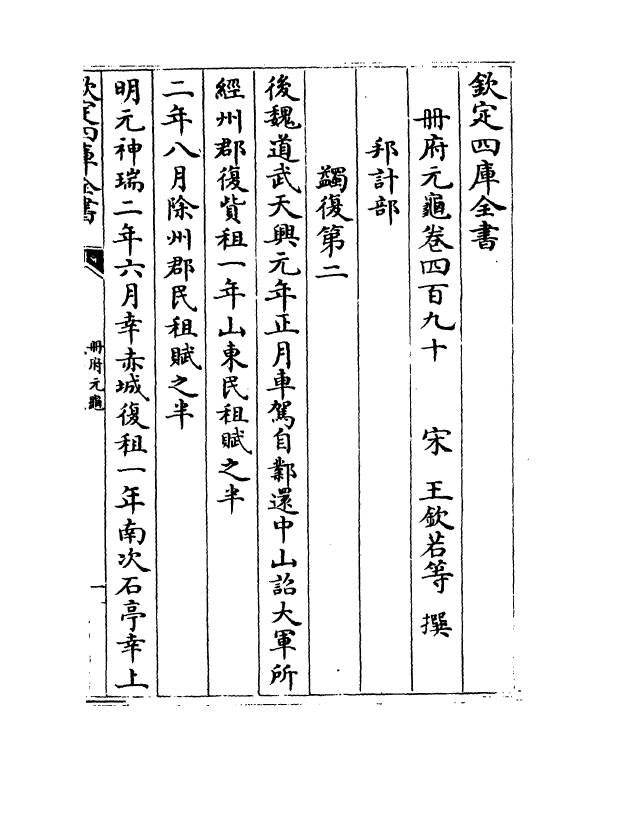 欽定四庫全書
冊府元龜卷四百九十 宋 王欽若等 撰
邦計部
蠲復第二
後魏道武天興元年正月車駕自鄴還中山詔大軍所
經州郡復貲租一年山東民租賦之半
二年八月除州郡民租賦之半
明元神瑞二年六月幸赤城復租一年南次石亭幸上
欽定四庫全書
冊府元龜
一